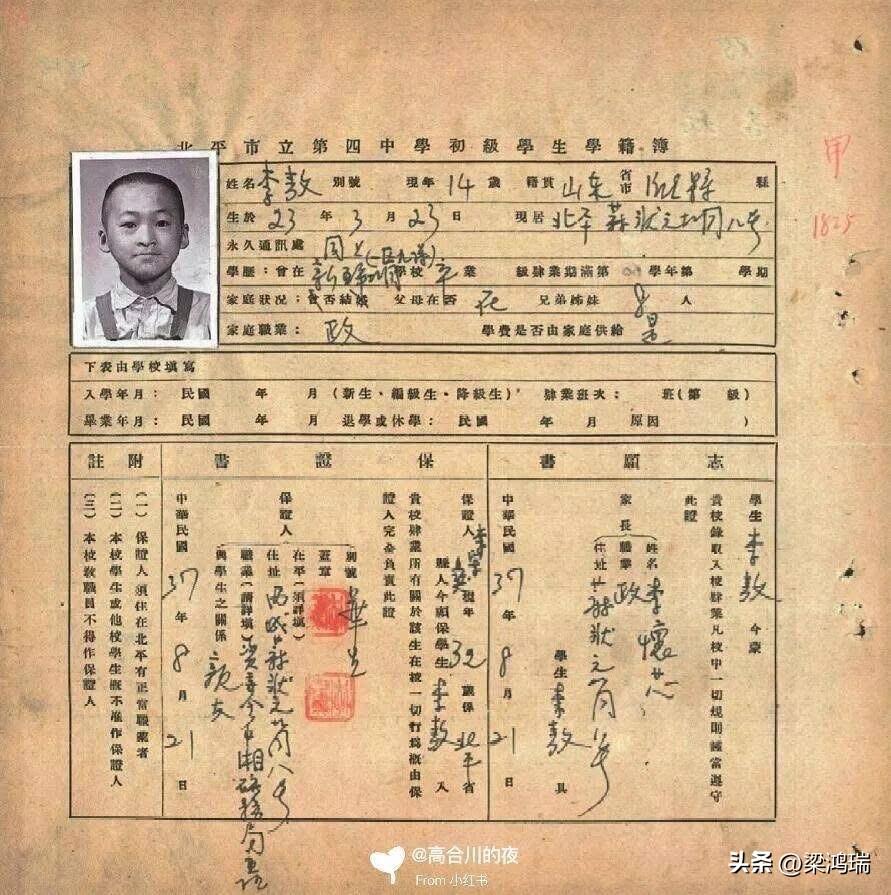 北平市立第四中學初級學生學籍簿
姓名 李敖 別號 現年 14 歲 籍貫 山東 省市 縣
生於 23 年 3 月 23 日 現居 北平 蘇狀元胡同八号
永久通訊處 同上
學歷：曾在 學校 卒 業 級肆業期滿第 學年第 學期
家庭狀況：曾否結婚 父母在否 在 兄弟姊妹 8 人
家庭職業： 政 學費是否由家庭供給 是
甲
1825
下表由學校填寫
入學年月：民國 年 月(新生、編級生、降級生) 肆業班次： 班(第 級)
畢業年月：民國 年 月 退學或休學：民國 年 月 原因 )
志願書
學生 李敖 今蒙
貴校錄取入校肆業凡校中一切規則誠當遵守
此證
家長
姓名 李懷芯
職業 政
住址 蘇狀元胡同八号
學生 李敖 具
中華民國 37 年 8 月 21 日
保證書
保證人 現年 32 歲係 北平 省
縣人今願保學生 李敖 入
貴校肆業所有關於該生在校一切行為概由保
證人完全負責此證
保證人
別號
蓋章
住址 在平(須詳填) 西城蘇狀元胡同八号
職業(請詳填)
與學生之關係 親友
中華民國 37 年 8 月 21 日
附註
(一) 保證人須住在北平有正當職業者
(二) 本校學生或他校學生概不准作保證人
(三) 本校教職員不得作保證人
@高合川的夜
From 小红书
头条 @梁鸿瑞